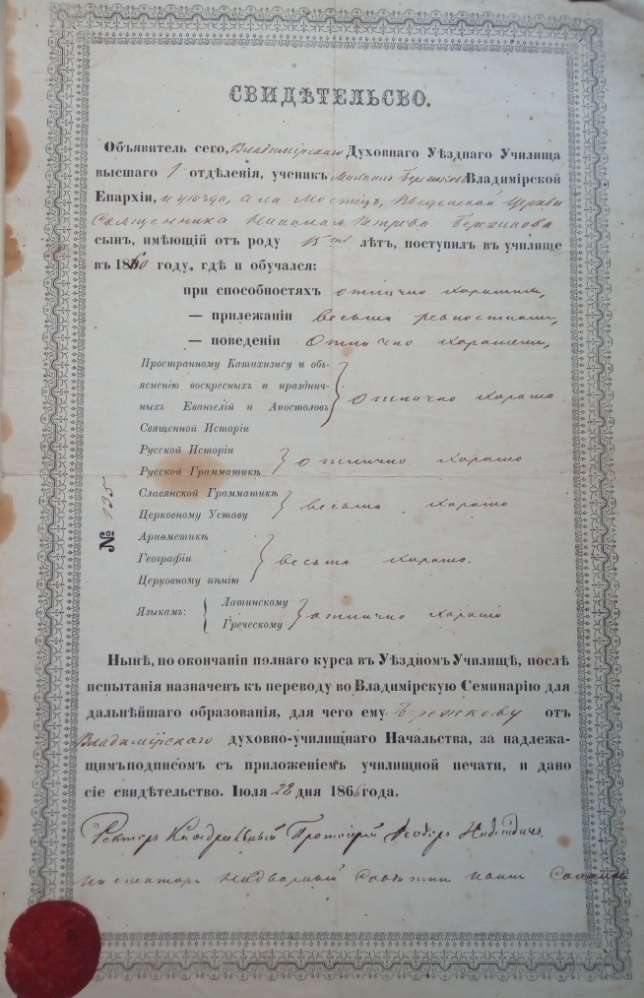 СВИДѢТЕЛЬСВО.
Объявитель сего, Владимірскаго Духовнаго Уѣзднаго Училища
высшаго 1 отдѣленія, ученик Владимірской
Епархіи, и уѣзда, села Церкви
Священника Николая Петрова Бережкова
сын, имѣющій отъ роду 15 лѣтъ, поступил въ училище
въ 1860 году, гдѣ и обучался:
при способностяхъ отлично хорошихъ,
— прилежаніи весьма ревностномъ,
— поведеніи отлично хорошемъ,
Пространному Катихизису и объ-
ясненію воскресныхъ и празднич-
ныхъ Евангелій и Апостоловъ
отлично хорошо
Священной Исторіи
Русской Исторіи
Русской Грамматикѣ
отлично хорошо
Славянской Грамматикѣ
Церковному Уставу
весьма хорошо
№
Ариѳметикѣ
Географіи
Церковному пѣнію
весьма хорошо.
Языкамъ:
Латинскому
Греческому
отлично хорошо
Нынѣ, по окончаніи полнаго курса въ Уѣздном Училищѣ, послѣ
испытанія назначен къ переводу во Владимірскую Семинарію для
дальнѣйшаго образованія, для чего ему Бережкову от
Владимірскаго духовно-училищнаго Начальства, за надлежа-
щимъподписом съ приложеніемъ училищной печати, и дано
сіе свидѣтельство. Іюля 22 дня 1866 года.
Ректоръ Каѳедральный Протоіерей Ѳеодоръ
Инспекторъ Надворный Совѣтник